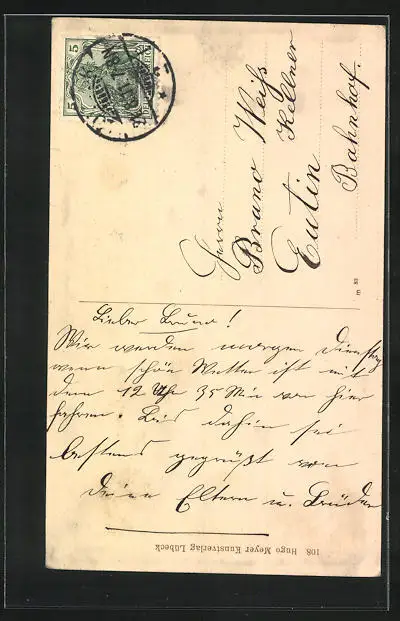 Herrn
Bruno Weiß
Kellner
Eutin
Bahnhof.
Lieber Bruno!
Wir werden morgen Dienstag
wenn schön Wetter ist mit
dem 12 Uhr 35 Min von hier
fahren. Bis dahin sei
bestens gegrüßt von
deine Eltern u. Brüder
108 Hugo Meyer Kunstverlag Lübeck
5 5